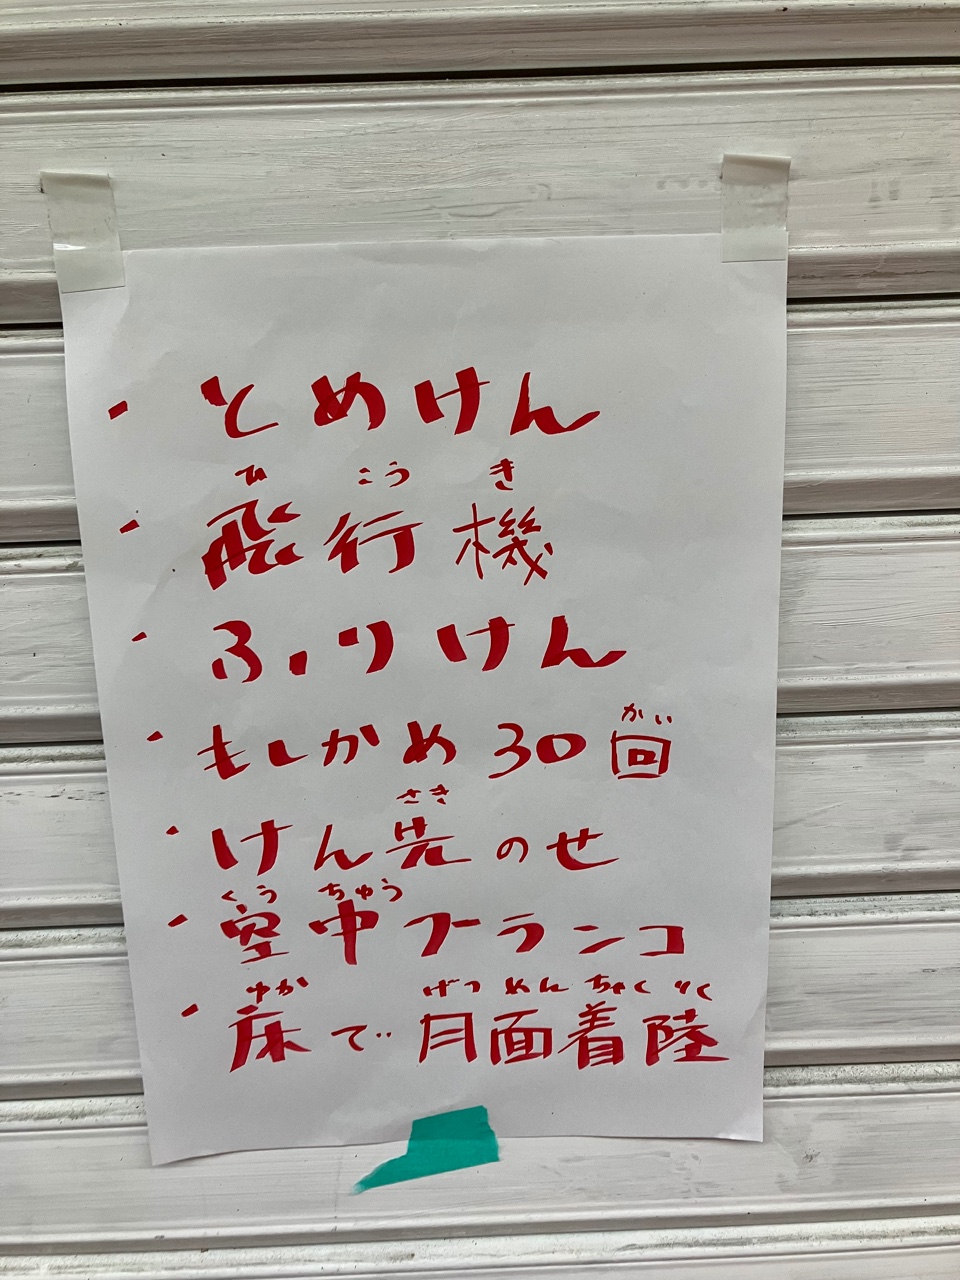 ・とめけん
ひ こう き
・飛行機
・ふりけん
がい
・もしかめ30回
さき
・けん先のせ
くう ちゅう
・空中フーランコ
ゆか げつ めん ちゃく りく
・床で月面着陸